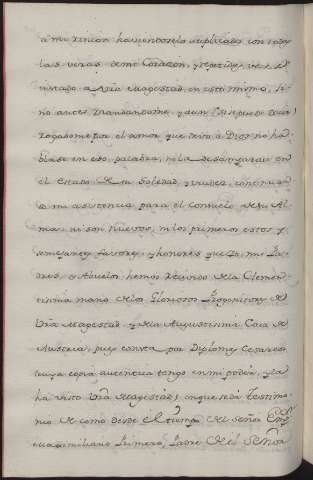 a mi rincon haviendoselo suplicado con todas
las veras de mi Corazon, y
a Vra Magestad en esto mismo, si
no antes mandandome, y aun
rogadome por el amor que devia a Dios no ha
blase en eso palabra, ni la desamparase en
el Estado de su Soledad, y viudez, continuan
do mi asistencia para el consuelo de su Al
ma: ni son nuevos, ni los primeros estos y
semejantes favores, y honores que Yo, mis Pa
dres, y Abuelos hemos recivido de la Clemen
tissima mano de los Gloriosos Progenitores de
Vra Magestad, y de la Augustissima Casa de
Austria, pues consta por Diplomas Cesareos
cuya copia autentica tengo en mi poder, y la
ha visto Vra Magestad, en que se da testimo
nio de como desde el tiempo del Señor Empor
Maximiliano Primero, Padre del Señor